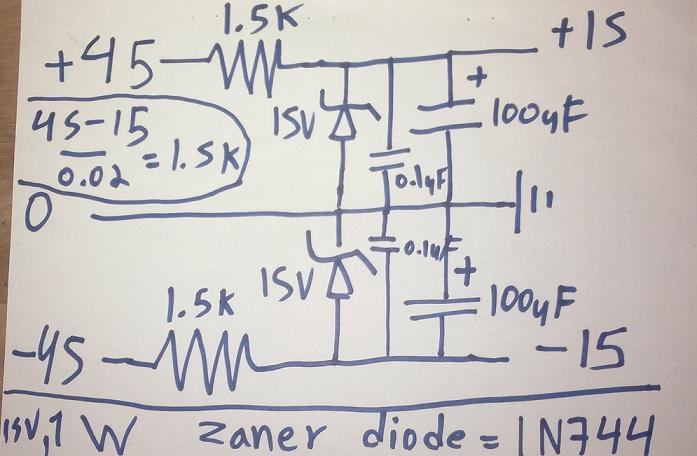 1.5K
+45
+15
15V
100µF
45-15
0.02
=1.5K
0.1µF
0
0.1µF
15V
1.5K
+
+
100µF
-45
-15
15V,1 W zaner diode = 1N744